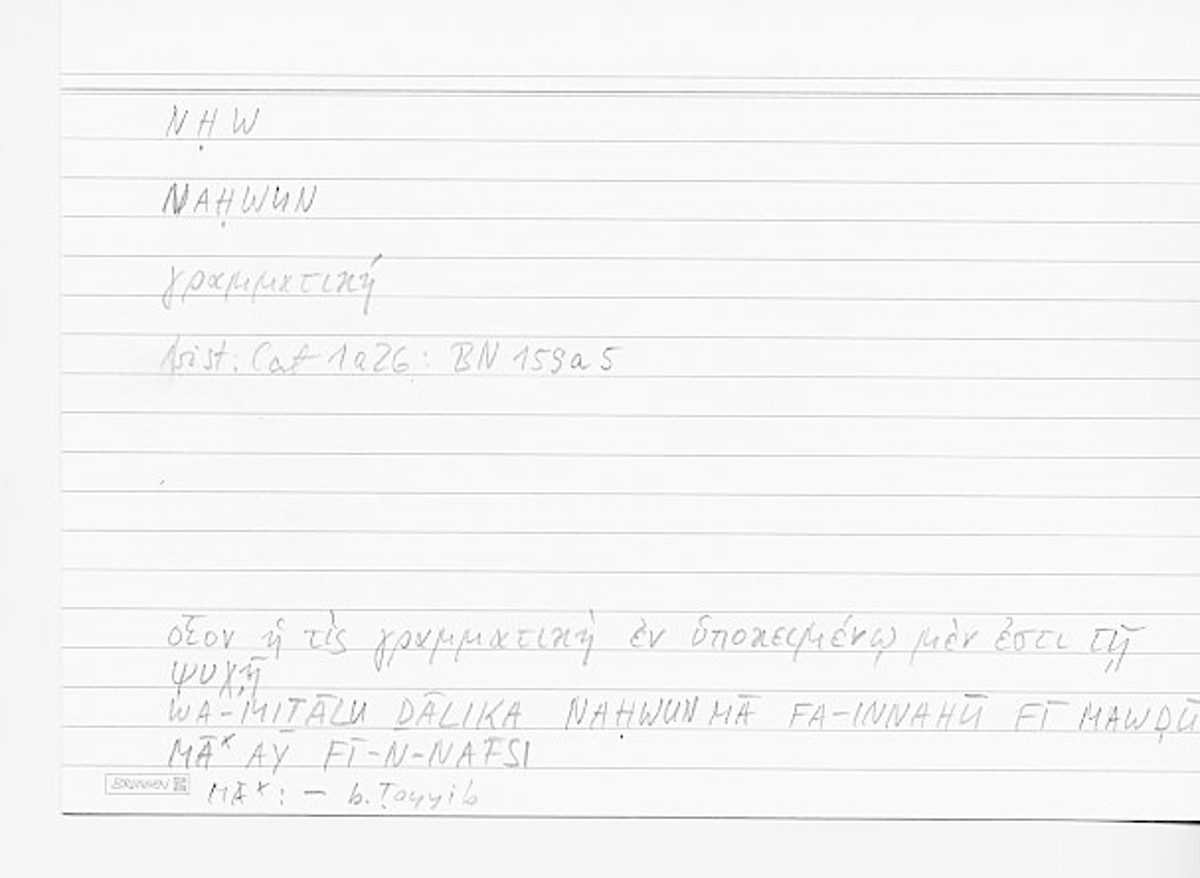 NḤW
NAḤWUN
γραμματική
Arist. Cat 1a26: BN 159a5
οἷον ἡ τὶς γραμματικὴ ἐν ὑποκειμένῳ μέν ἐστι τῇ
ψυχῇ
WA-MIṮĀLU ḎĀLIKA NAḤWUN MĀ FA-INNAHŪ FĪ MAWḌŪ
MĀˣ AY FĪ-N-NAFSI
MĀˣ: – b. Ṭayyib